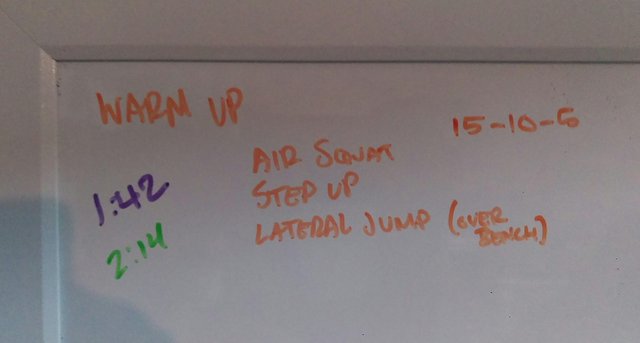 WARM UP
15-10-5
AIR SQUAT
1:42
STEP UP
2:14
LATERAL JUMP (OVER
BENCH)